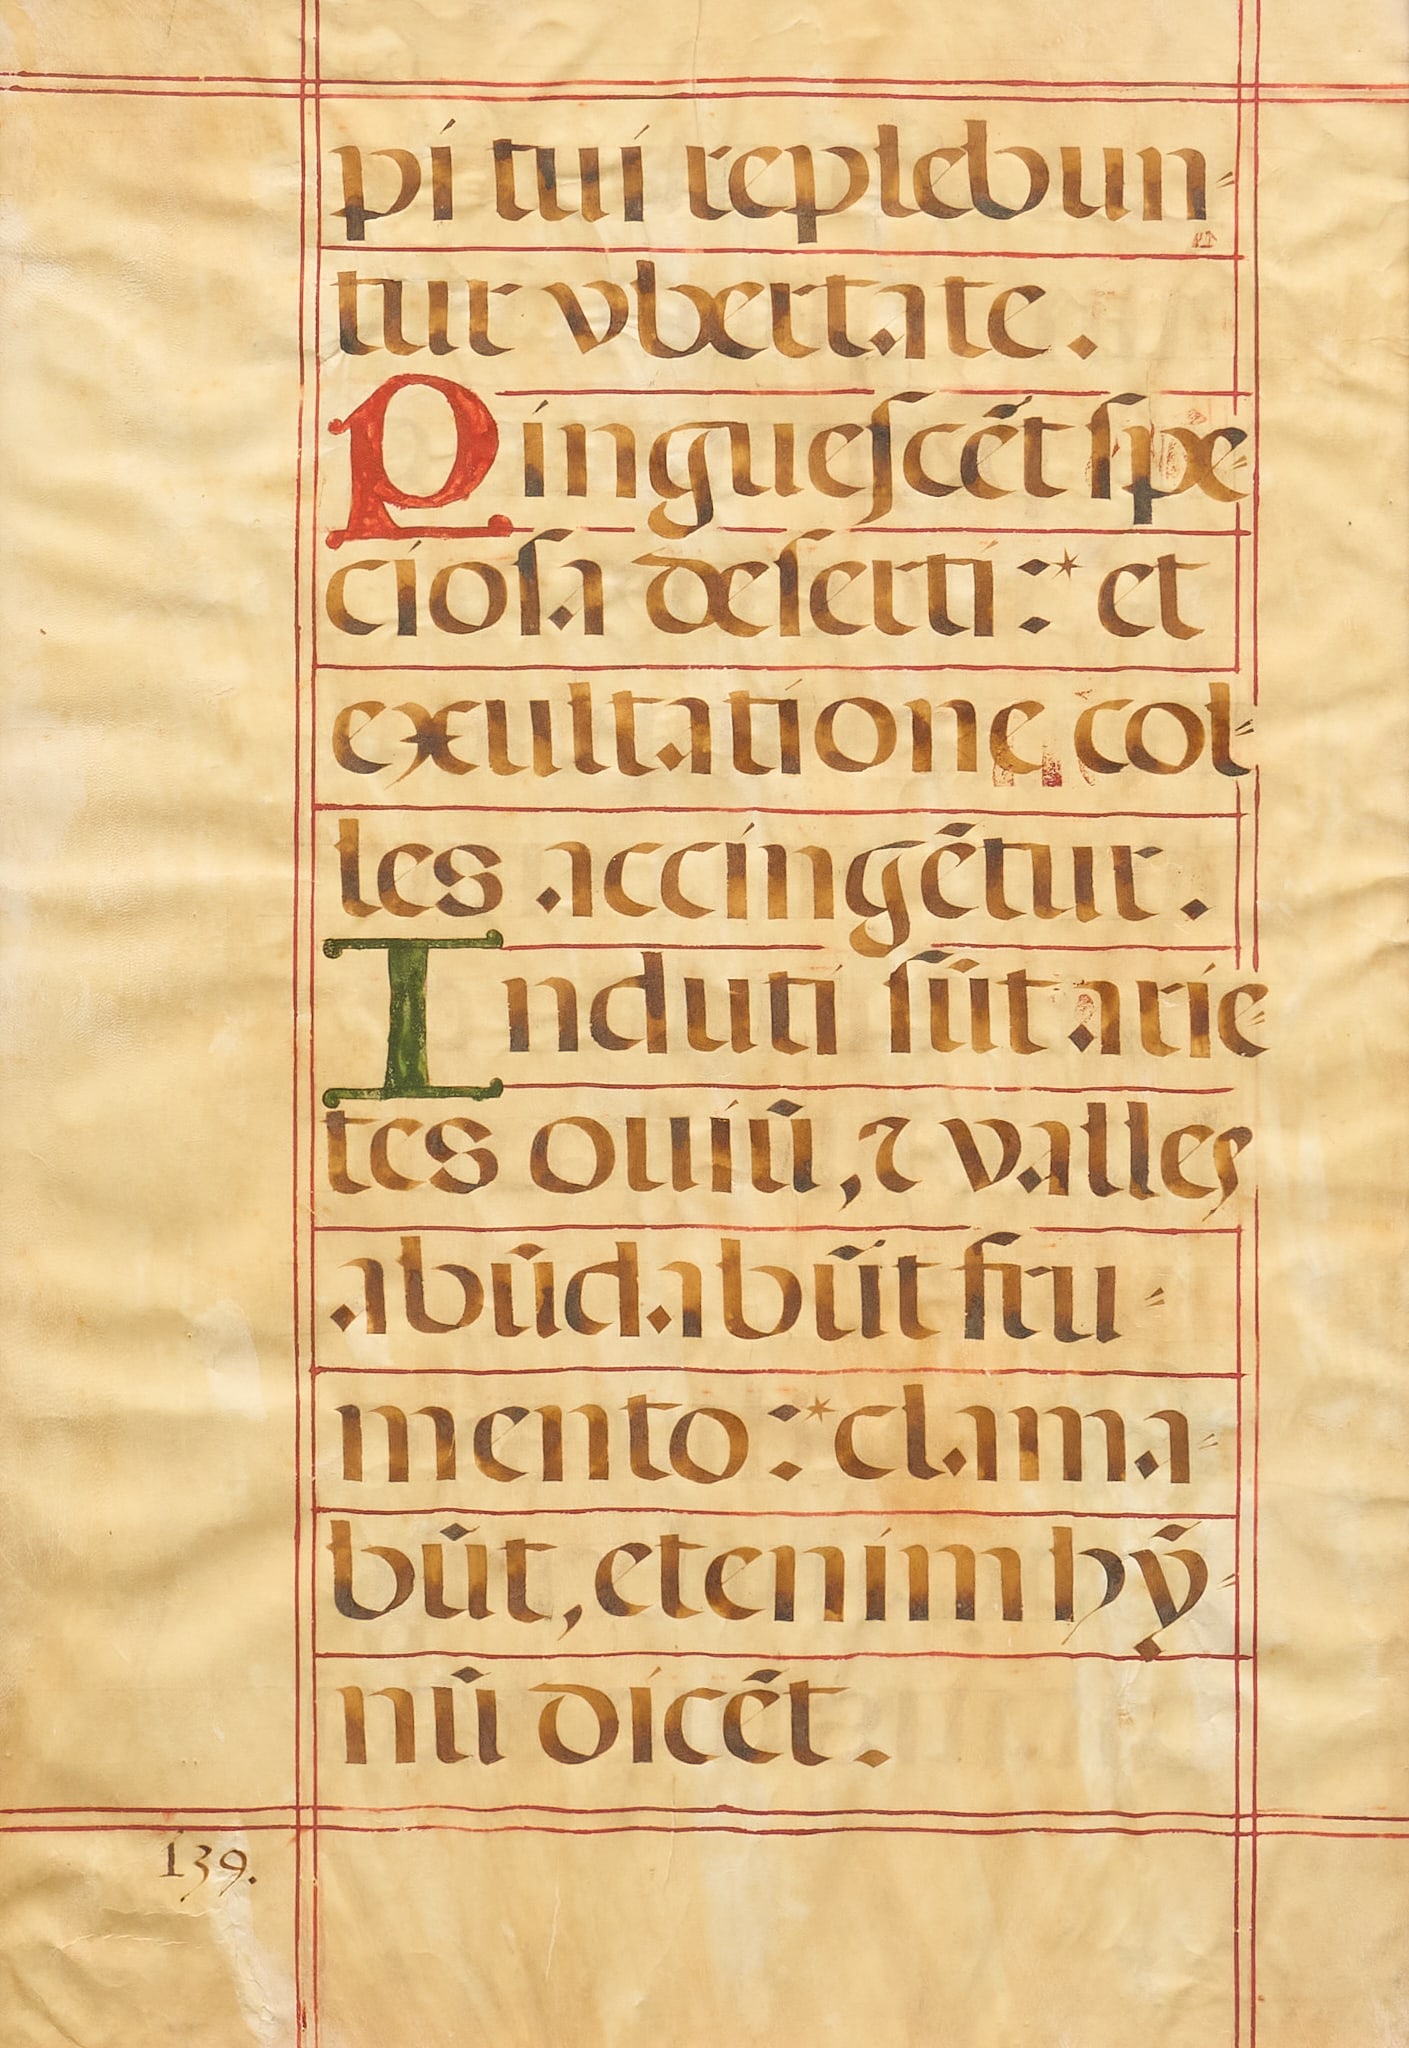 pi tui replebun-
tur vbertate.
Pingueſcēt ſpe-
cioſa deſerti :* et
exultatione col-
les accingētur.
Induti ſūt arie-
tes ouiū, ⁊ valles
abūdabūt fru-
mento :* clama-
būt, etenim hỹ-
nū dicēt.
139.